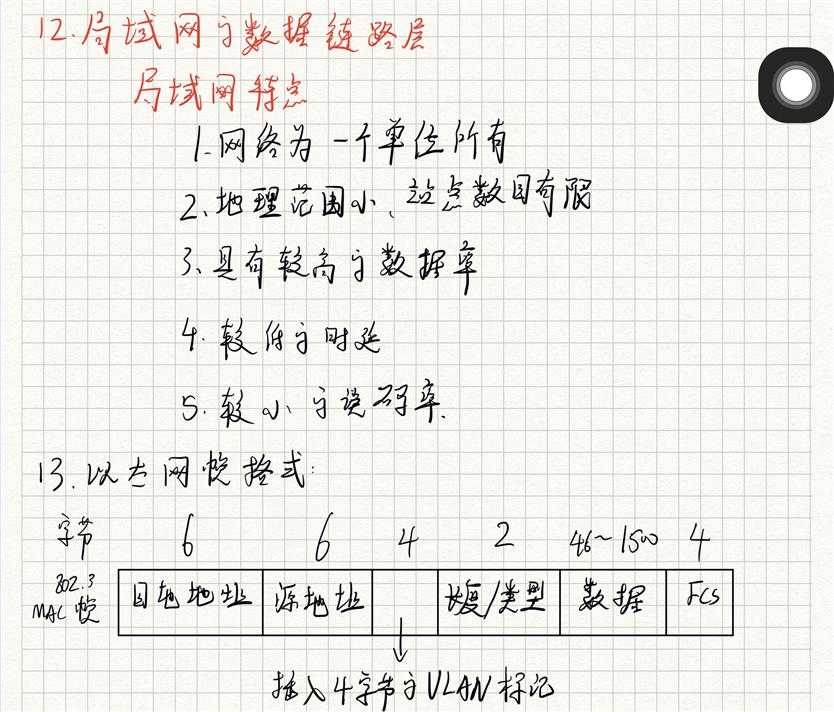 12.局域网的数据链路层
局域网特点
1.网络为一个单位所有
2、地理范围小、站点数目有限
3、具有较高的数据率
4.较低的时延
5.较小的误码率.
13.以太网帧格式:
字节 6 6 4 2 46~1500 4
802.3 MAC帧 目地地址 源地址 长度/类型 数据 FCS
插入4字节的VLAN标记